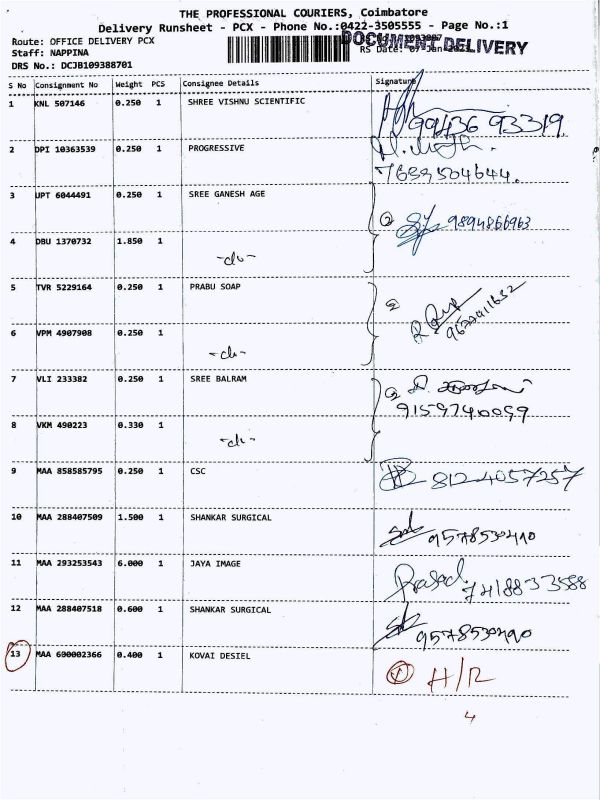 THE PROFESSIONAL COURIERS, Coimbatore
Delivery Runsheet - PCX - Phone No.:0422-3505555 - Page No.:1
Route: OFFICE DELIVERY PCX
DOCUMENT DELIVERY
Staff: NAPPINA
RS Date: 07 Jan
DRS No.: DCJB109388701
S No Consignment No Weight PCS Consignee Details Signature
1 KNL 507146 0.250 1 SHREE VISHNU SCIENTIFIC
99436 93319.
2 DPI 10363539 0.250 1 PROGRESSIVE
7639504644.
3 UPT 6044491 0.250 1 SREE GANESH AGE
② 9894866963
4 DBU 1370732 1.850 1
-do-
5 TVR 5229164 0.250 1 PRABU SOAP
②
6 VPM 4907908 0.250 1
-do-
7 VLI 233382 0.250 1 SREE BALRAM
②
9159740099
8 VKM 490223 0.330 1
-do-
9 MAA 858585795 0.250 1 CSC
8124057257
10 MAA 288407509 1.500 1 SHANKAR SURGICAL
9578530490
11 MAA 293253543 6.000 1 JAYA IMAGE
Prasad
7418833588
12 MAA 288407518 0.600 1 SHANKAR SURGICAL
9578530490
13 MAA 600002366 0.400 1 KOVAI DESIEL
① H/R
4